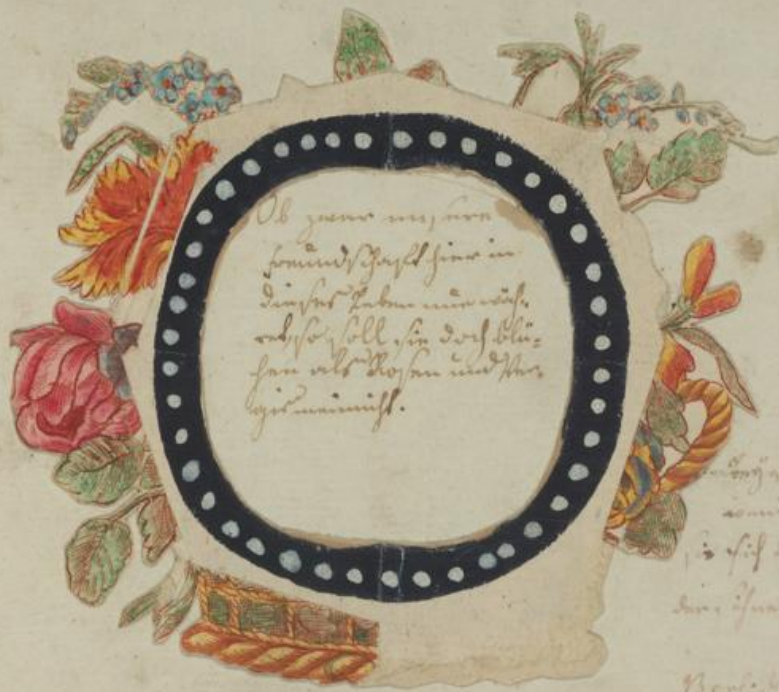 Ob zwar unsere
Freundschaft hier in
dieses Leben nur wäh-
ret, so soll sie doch blü-
hen als Rosen und Ver-
gis meinnicht.